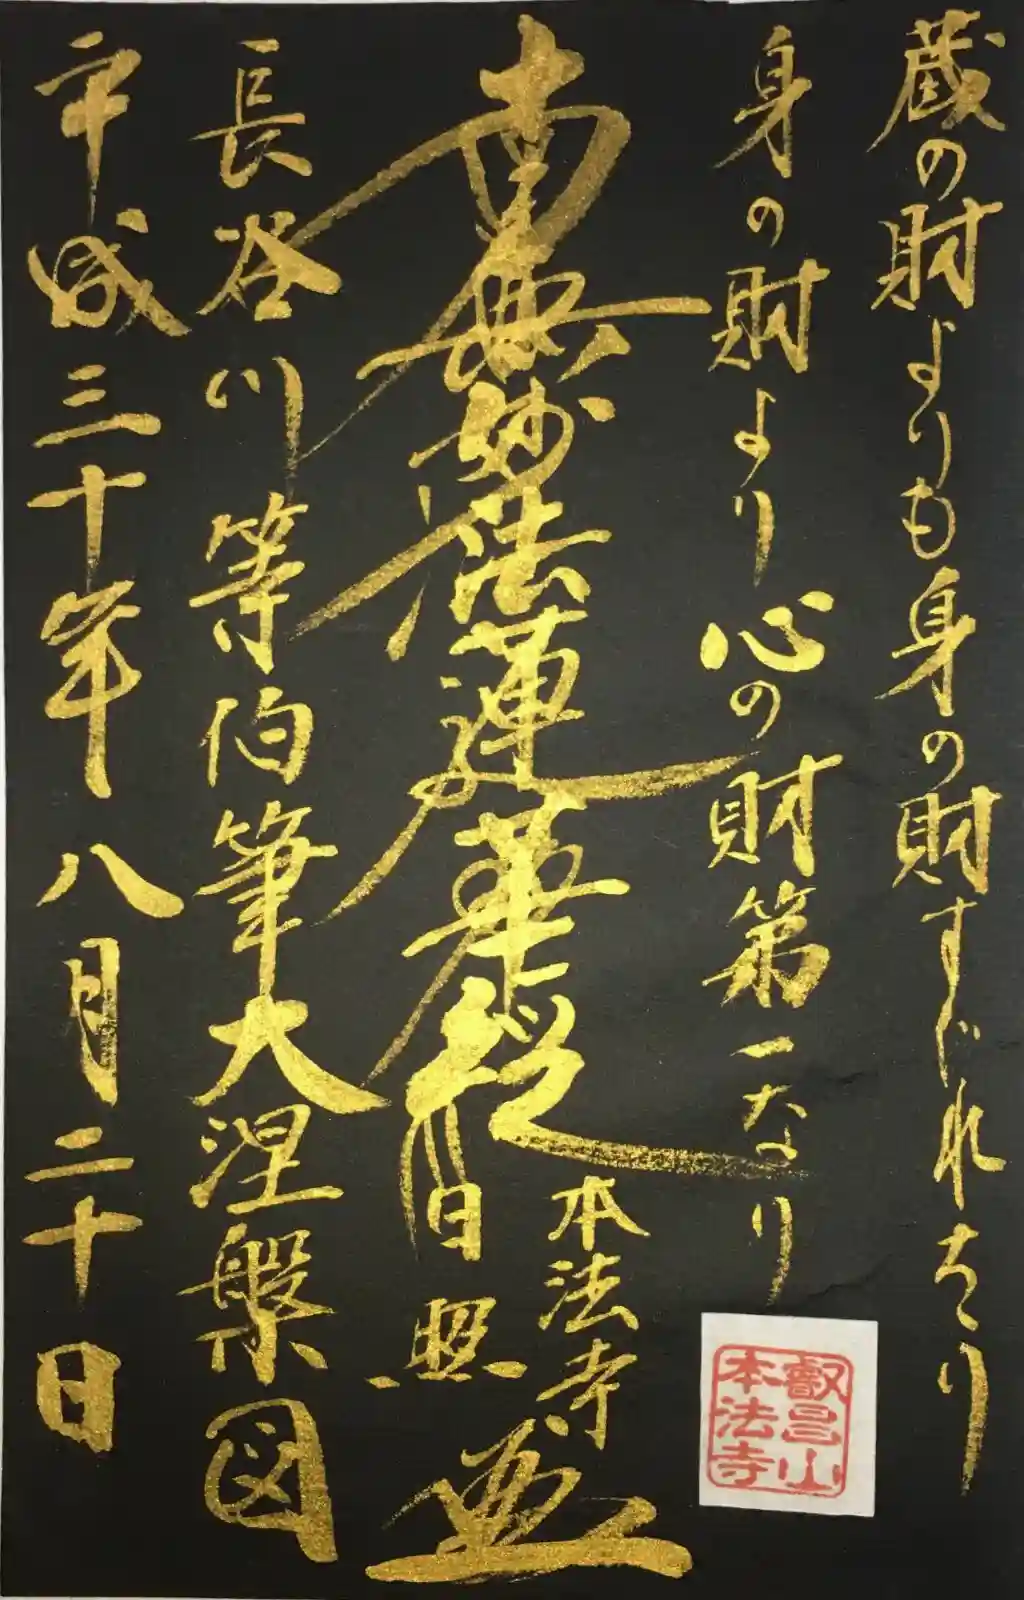 蔵の財よりも身の財すぐれたり
身の財より心の財第一なり
叡昌山
本法寺
南無妙法蓮華経
本法寺
日照
長谷川等伯筆大涅槃図
平成三十年八月二十日